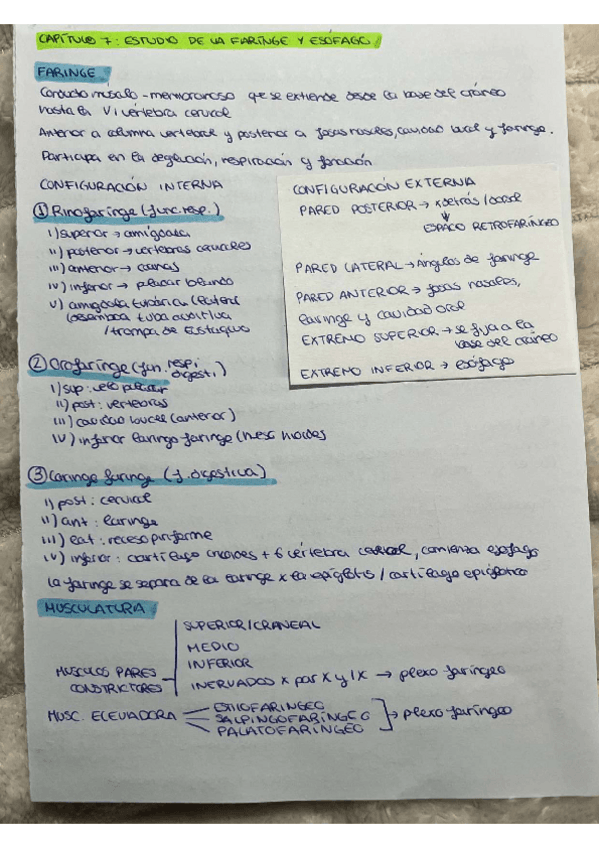 CAPÍTULO 7: ESTUDIO DE LA FARINGE Y ESÓFAGO
FARINGE
Conducto músculo-membranoso que se extiende desde la base del cráneo
hasta la VI vértebra cervical
Anterior a columna vertebral y posterior a fosas nasales, cavidad bucal y faringe.
Participa en la deglución, respiración y fonación
CONFIGURACIÓN INTERNA
① Rinofaringe (func. resp.)
I) superior → amígdala
II) posterior → vértebras cervicales
III) anterior → coanas
IV) inferior → paladar blando
V) amígdala tubárica (lateral)
desemboca tuba auditiva
/trompa de Eustaquio
CONFIGURACIÓN EXTERNA
PARED POSTERIOR → x detrás/dorsal
↓
ESPACIO RETROFARÍNGEO
PARED LATERAL → Ángulos de faringe
PARED ANTERIOR → fosas nasales,
laringe y cavidad oral
EXTREMO SUPERIOR → se fija a la
base del cráneo
EXTREMO INFERIOR → esófago
② Orofaringe (fun. resp. digest.)
I) sup: velo paladar
II) post: vértebras
III) cavidad bucal (anterior)
IV) inferior laringo faringe (hueso hioides
③ Laringe faringe (f. digestiva)
I) post: cervical
II) ant: laringe
III) lat: receso piriforme
IV) inferior: cartílago cricoides + 6 vértebra cervical, comienza esófago
La faringe se separa de la laringe x la epiglotis / cartílago epiglótico
MUSCULATURA
MUSCULOS PARES
CONSTRICTORES
SUPERIOR/CRANEAL
MEDIO
INFERIOR
INERVADOS X par X y IX → plexo faríngeo
MUSC. ELEVADORA
ESTILOFARÍNGEO
SALPINGOFARÍNGEO
PALATOFARÍNGEO
→ plexo faríngeo